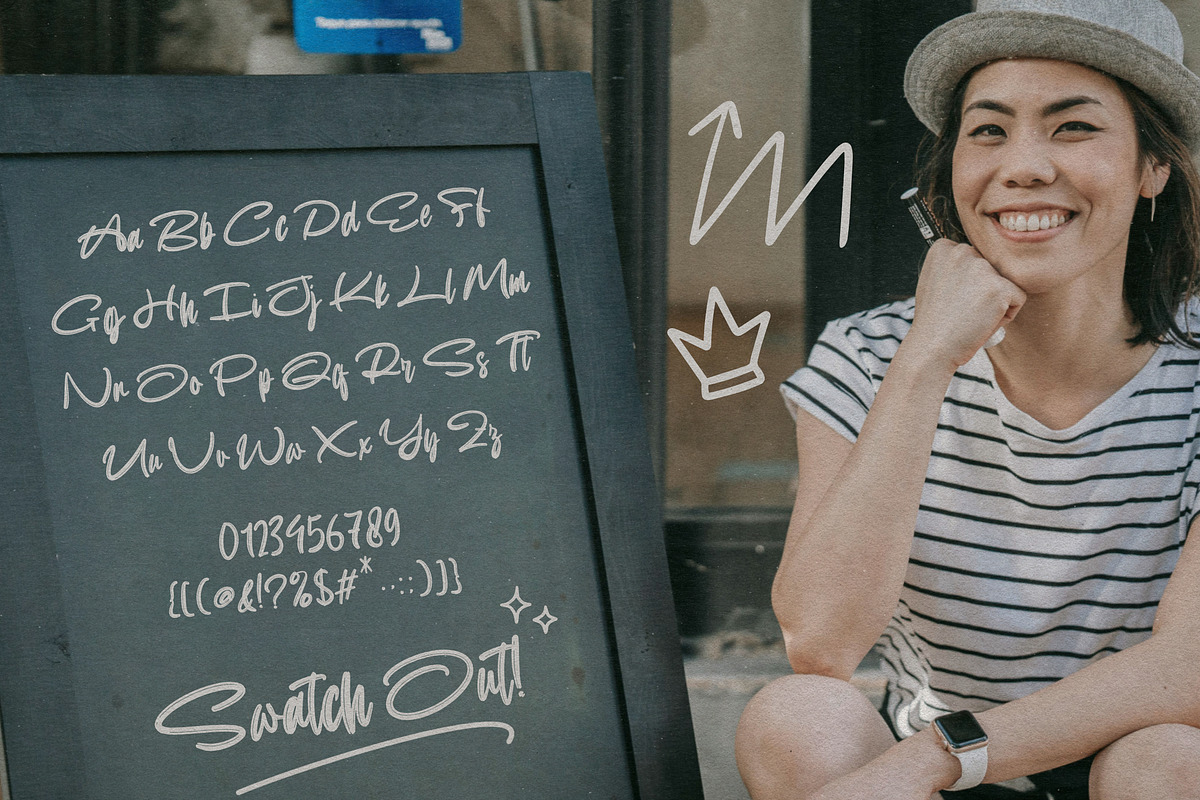 Aa Bb Cc Dd Ee Ff
Gg Hh Ii Jj Kk Ll Mm
Nn Oo Pp Qq Rr Ss Tt
Uu Vv Ww Xx Yy Zz
0123456789
{[(@&!?%$#* .,:;)]}
Swatch Out!